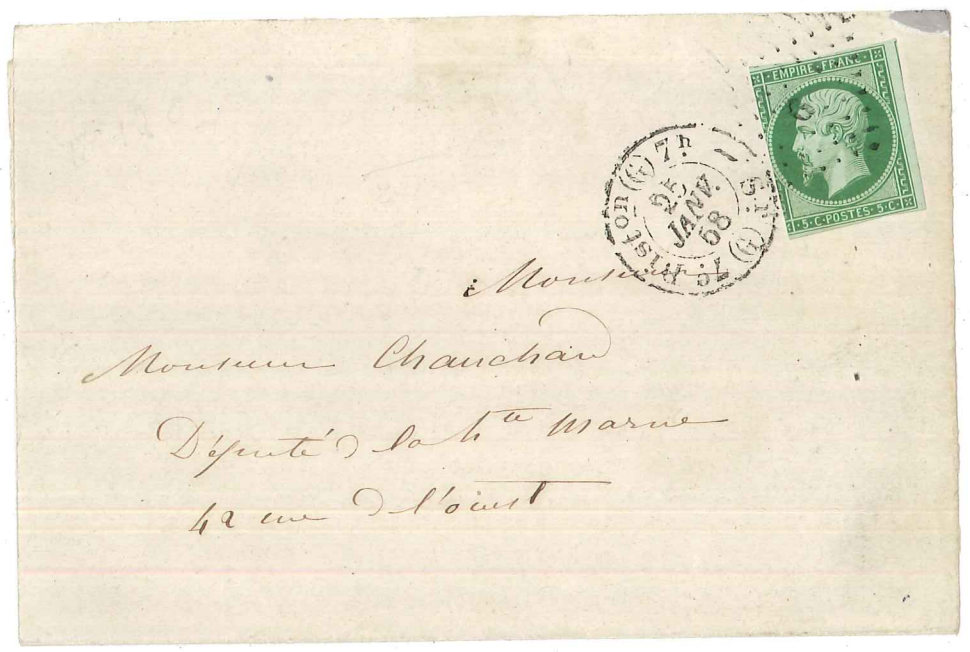 EMPIRE FRANC
5·C·POSTES·5·C·
7e Diston (G) 7h
25
JANV.
68
(G)
Monsieur
Monsieur Chauchard
Député de la hte marne
42 rue de l'ouest